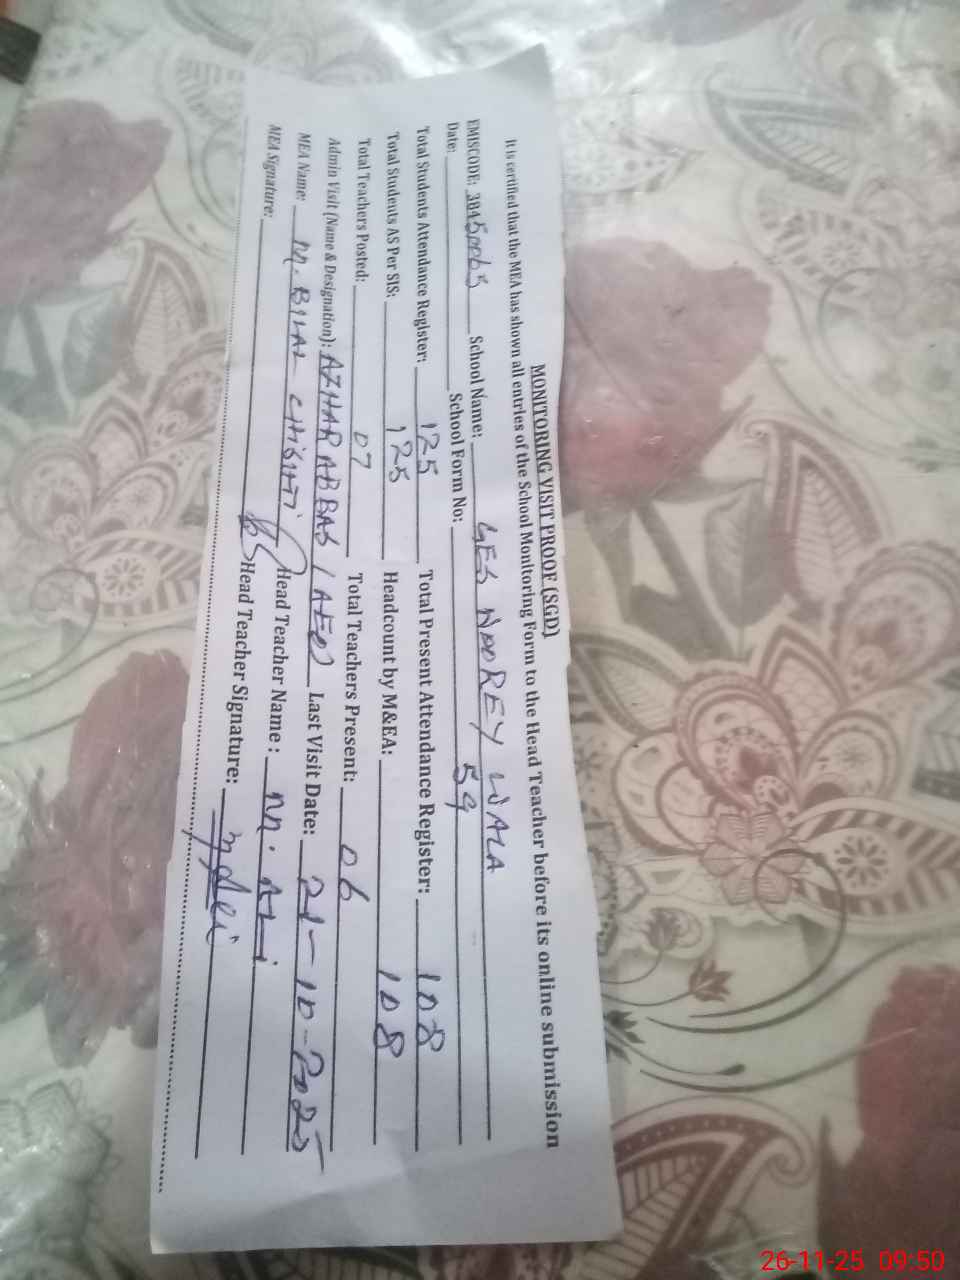 MONITORING VISIT PROOF (SGD)
It is certified that the MEA has shown all entries of the School Monitoring Form to the Head Teacher before its online submission
EMISCODE: School Name: WALA
Date: School Form No: 59
Total Students Attendance Register: 125 Total Present Attendance Register: 108
Total Students AS Per SIS: 125 Headcount by M&EA: 108
Total Teachers Posted: 07 Total Teachers Present: 06
Admin Visit (Name & Designation): AZHAR ABBAS (AEO) Last Visit Date: 21-10-2025
MEA Name: M. BILAL CHISHTI Head Teacher Name: M. ALI
MEA Signature: Head Teacher Signature:
26-11-25 09:50